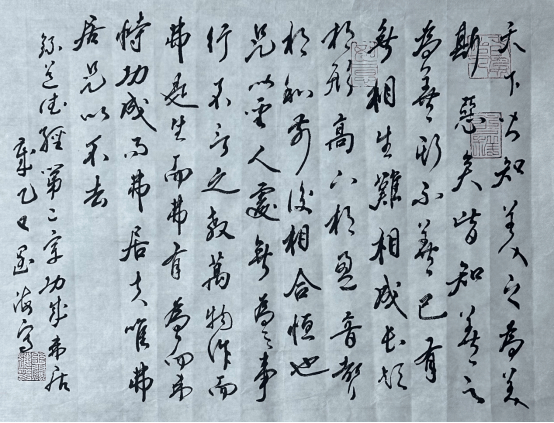 天下皆知美之為美
斯惡矣皆知善之
為善斯不善已有
無相生難相成長短
相形高下相盈音聲
相和前後相合恒也
是以聖人處無為之事
行不言之教萬物作而
弗生而弗有為而弗
恃功成而弗居夫唯弗
居是以不去
錄道德經第二章功成弗居
歲乙巳海寫